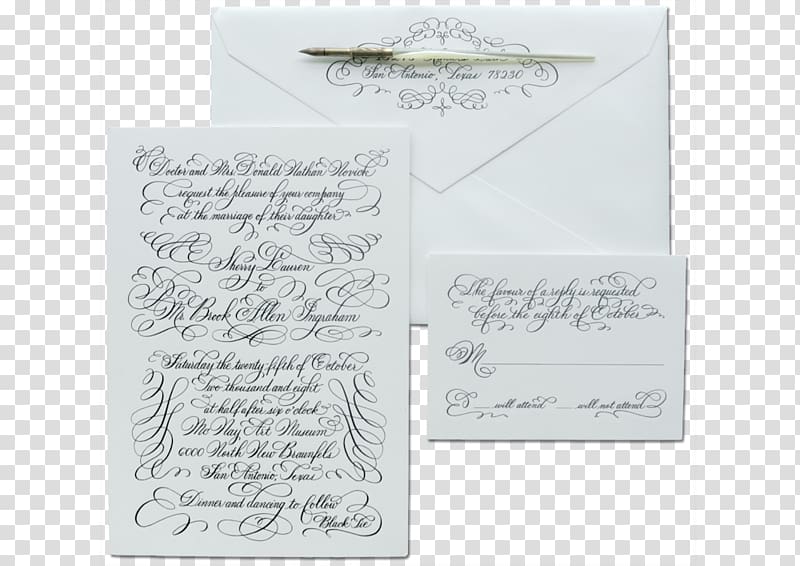 San Antonio, Texas 78230
Doctor and Mrs Donald Nathan Novich
request the pleasure of your company
at the marriage of their daughter
Sherry Lauren
to
Mr Brook Allen Ingraham
Saturday the twenty-fifth of October
Two thousand and eight
at half after six o'clock
McNay Art Museum
6000 North New Braunfels
San Antonio, Texas
Dinner and dancing to follow
Black Tie
The favour of a reply is requested
before the eighth of October
M
will attend will not attend